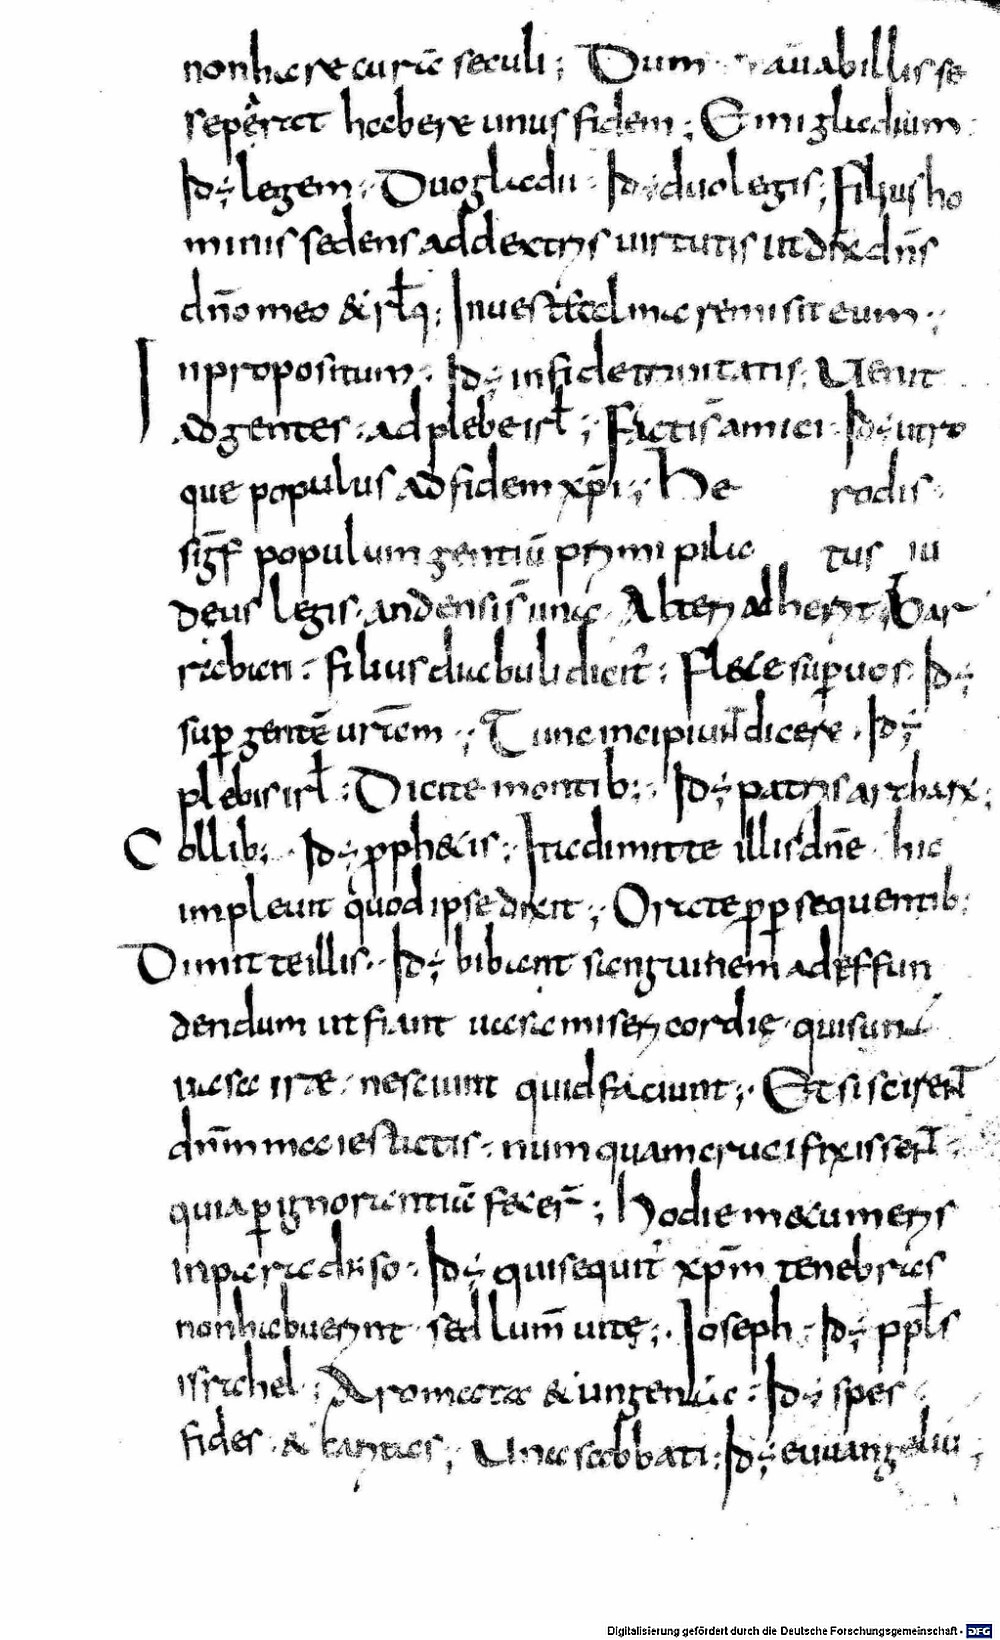 non hic recuria seculi; Dum auabillis se
seperat habere unus fidem; Emi gladium
Id ÷ legem; Duo gladii · Id ÷ duo legis; Filius ho
minis sedens addextris uirtutis ut dix dn̄s
dn̄o meo & rl̄q; In ueste alma remisit eum;
In propositum · Id ÷ in fide trinitatis; Uenit
ad gentes · ad plebe isrl̄; Facti s̄ amici · Id ÷ utro
que populus ad fidem xp̄i; He rodis
siḡf populum gentiū primi pila tus iu
deus legis · andensis una Alteri adherit; Bar
rabban · filius diabuli dicit̄; Flete sup uos · Id ÷
sup gentē urām; Tunc incipiunt dicere · Id ÷
plebis isrl̄; Dicite montib; Id ÷ patris ar
Collib; Id ÷ pphetis; Ita dimitte illis dn̄e · hic
impleuit quod ipse dixit; Orate p psequentib;
Dimitte illis · Id ÷ bibiant sanguinem ad effun
dendum ut fiant uasa misericordię · qui sunt
uasa irae · nesciunt quid faciunt; Et si scirent
dn̄m maiestatis · num quam crucifixissent
quia p ignorantia fecer̄; Hodie mecum eris
in paradiso · Id ÷ qui sequit̄ xp̄m tenebras
non habuerint sed lum̄ uitę; Ioseph · Id ÷ ppl̄s
israhel; Aromata & ungenta · Id ÷ spes
fides · & karitas; Una sabbati · Id ÷ euuangeliū;
Digitalisierung gefördert durch die Deutsche Forschungsgemeinschaft - DFG